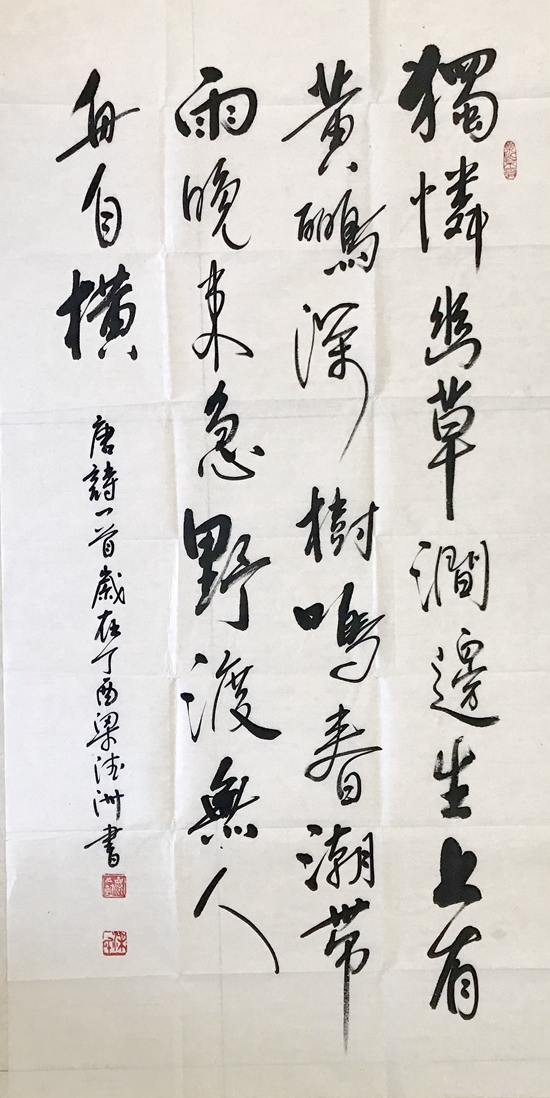 獨憐幽草澗邊生上有
黃鸝深樹鳴春潮帶
雨晚来急野渡無人
舟自橫
唐詩一首歲在丁酉梁法洲書